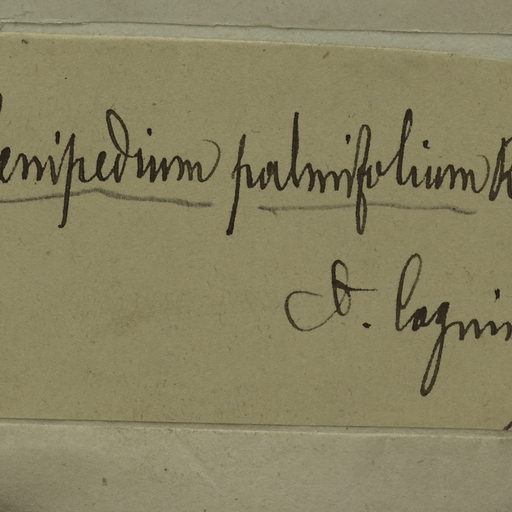 enipedium palmifolium
A. Cogni